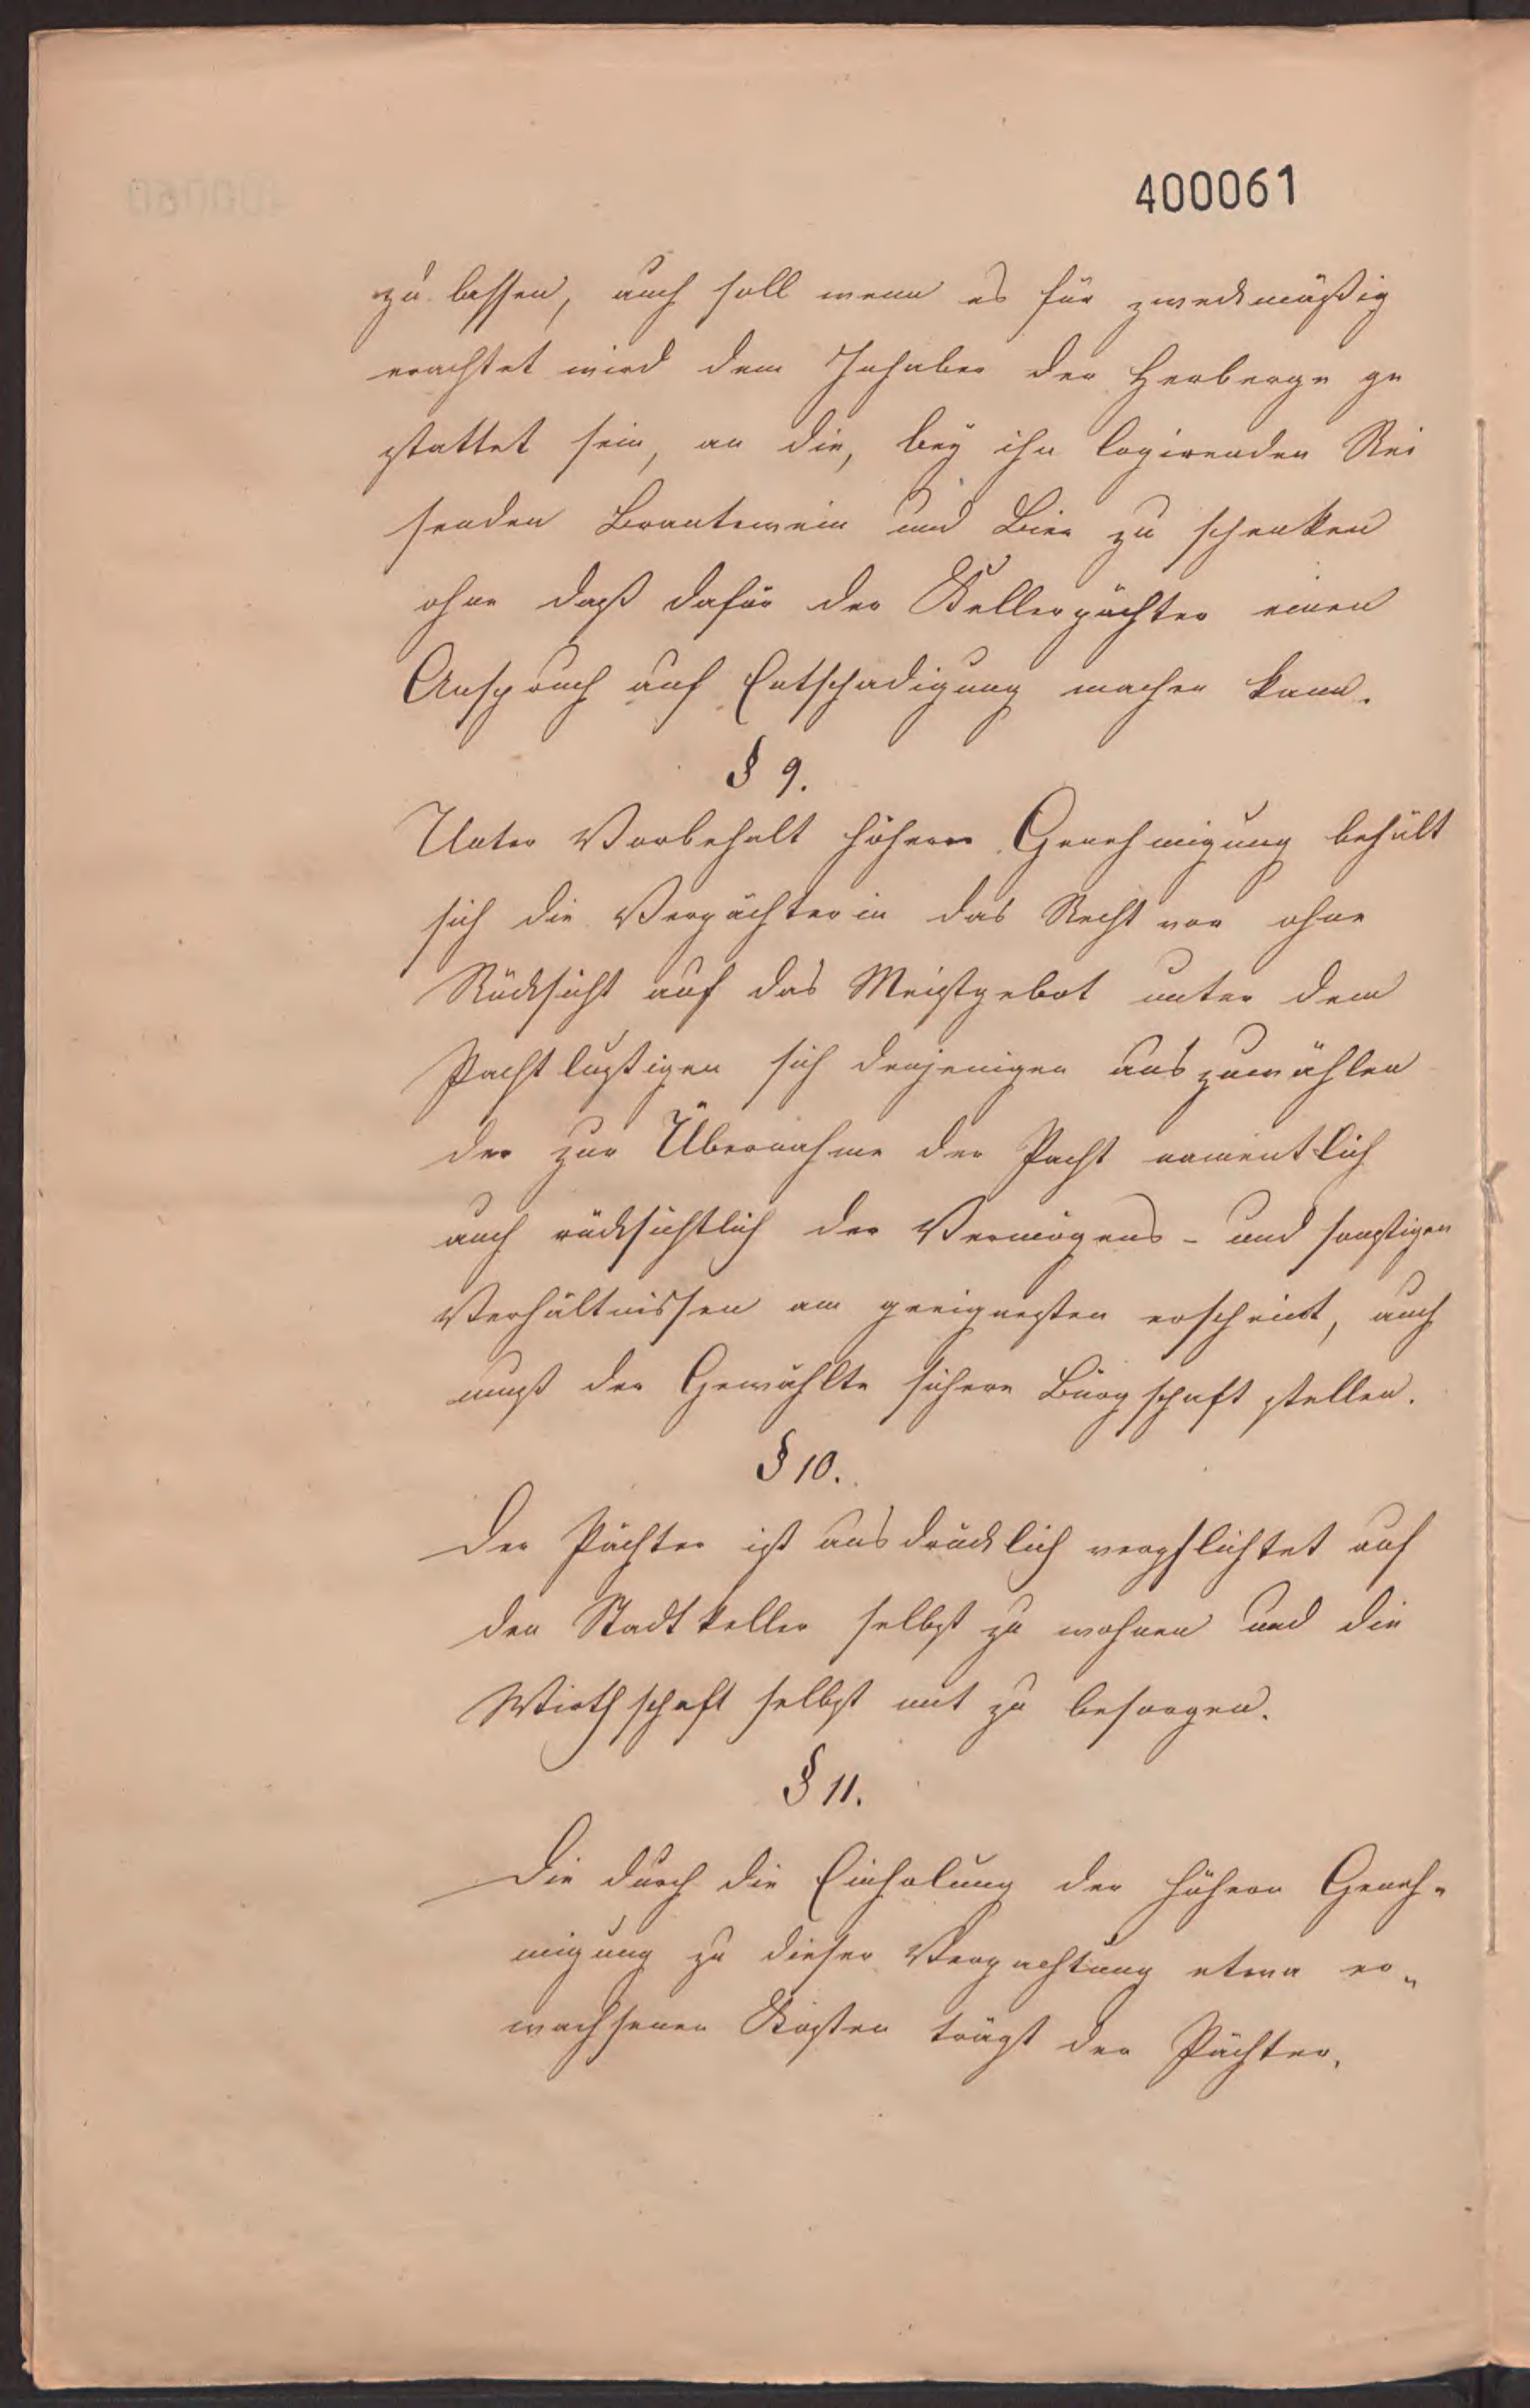 400061
zu lassen, auch soll wenn es für zweckmäßig
erachtet wird dem Inhaber der Herberge ge
stattet sein, an die, bey ihn logirenden Rei
senden Brantewein und Bier zu schenken
ohne daß dafür der Kellerpächter einen
Anspruch auf Entschadigung machen kann.
§ 9.
Unter Vorbehalt höherer Genehmigung behält
sich die Verpächterin das Recht vor ohne
Rücksicht auf das Meistgebot unter dem
Pachtlustigen sich denjenigen auszuwählen
der zur Übernahme der Pacht namentlich
auch rücksichtlich der Vermögens- und sonstigen
Verhältnissen am geeignesten erscheint, auch
muß der Gewählte sichere Bürgschaft stellen.
§ 10.
Der Pächter ist ausdrücklich verpflichtet auf
den Stadtkeller selbst zu wohnen und die
Wirthschaft selbst mit zu besorgen.
§ 11.
Die durch die Einholung der höhern Geneh-
migung zu dieser Verpachtung etwa er-
wachsenen Kosten trägt der Pächter.